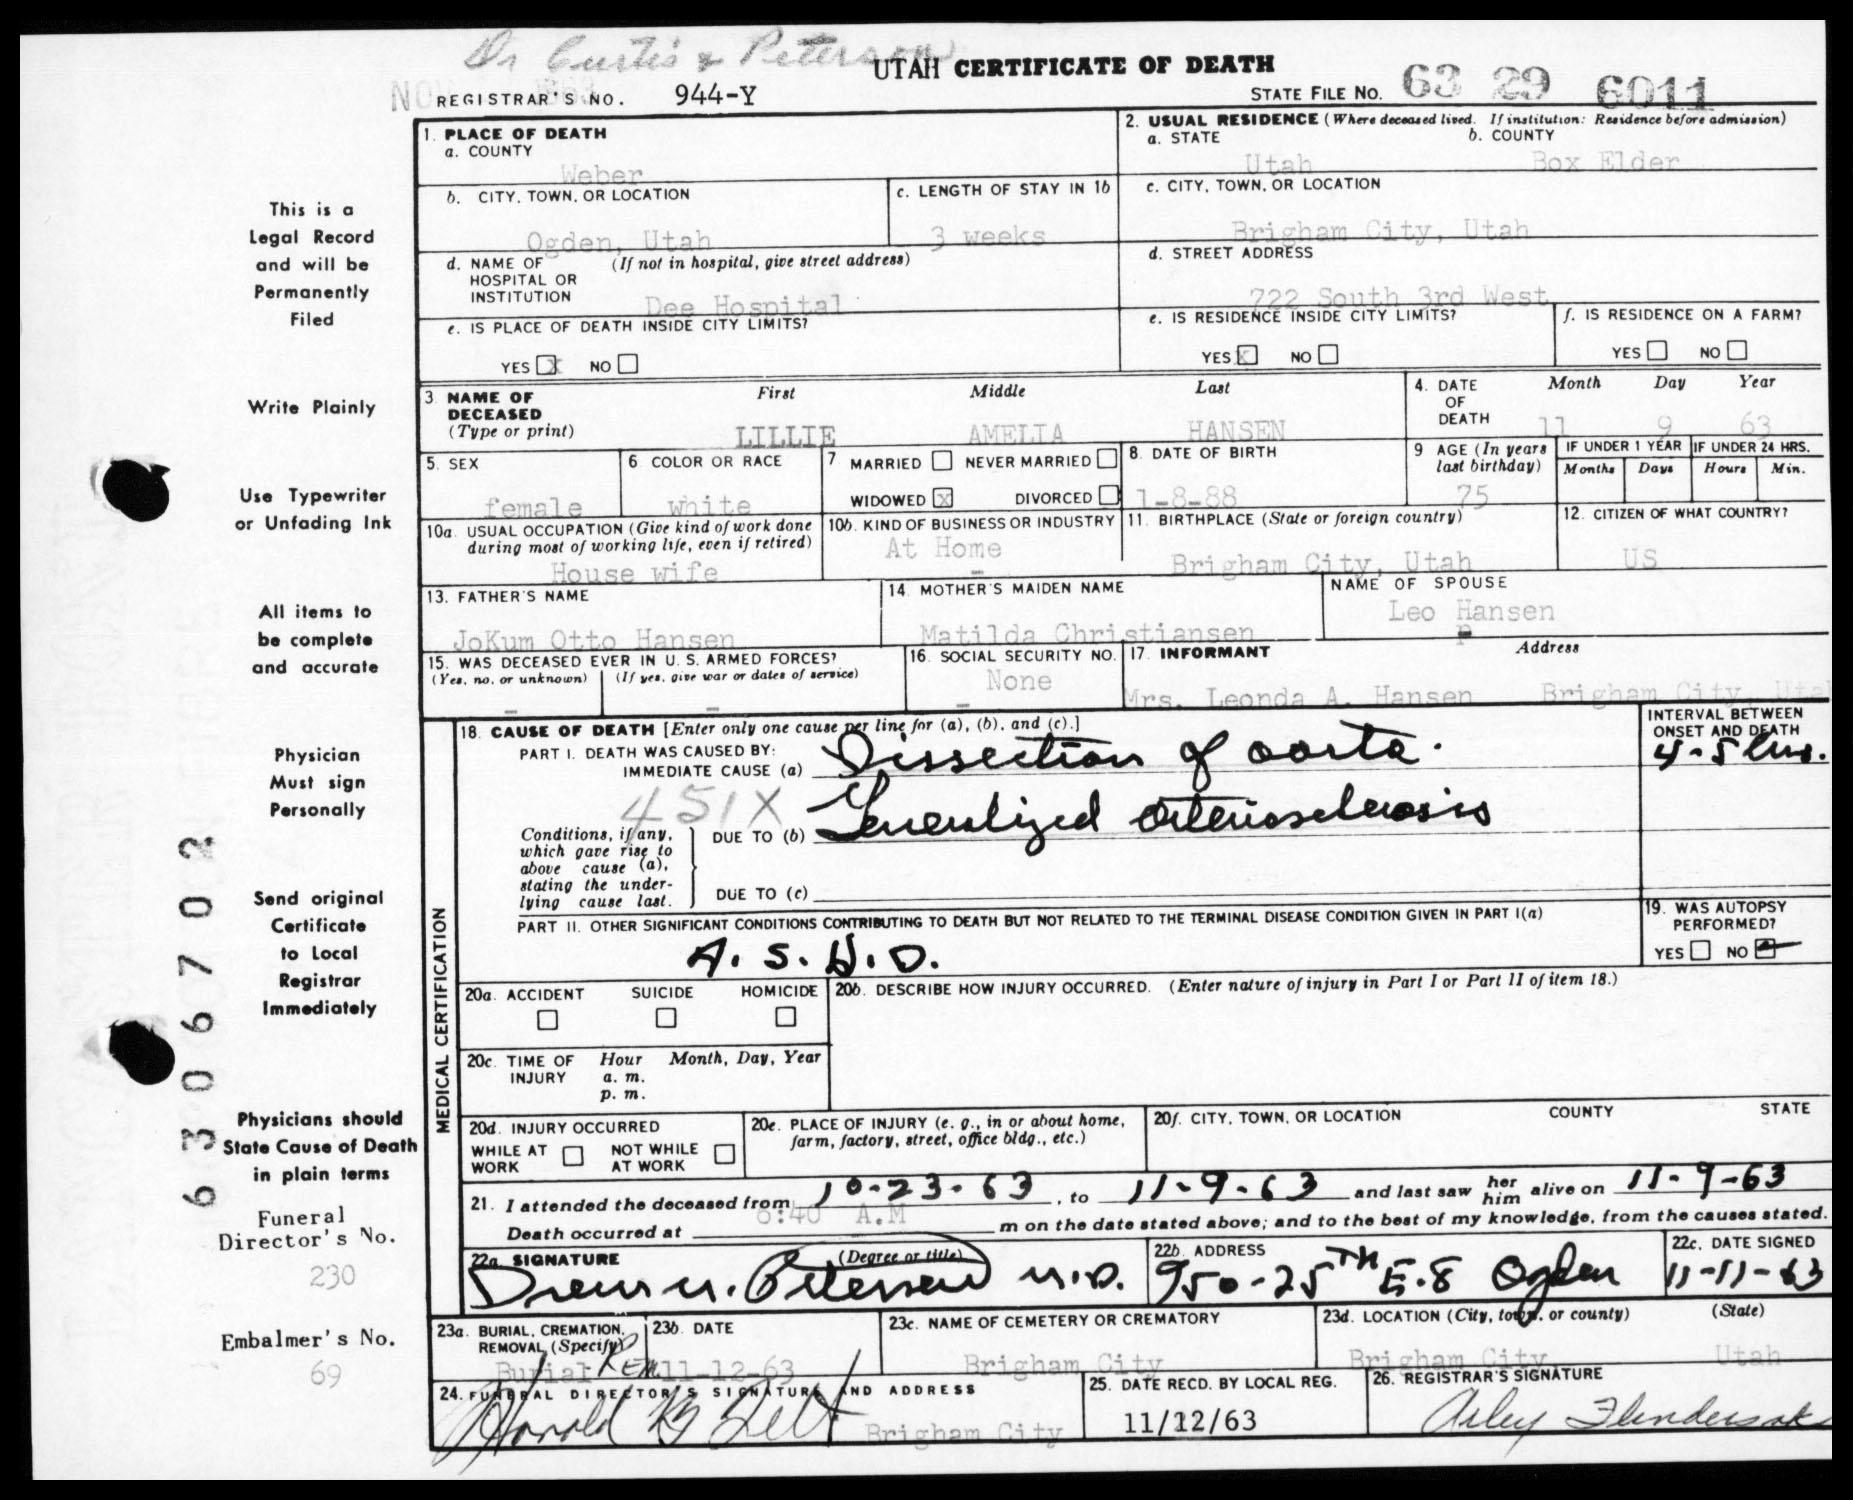 Dr Curtis & Peterson
UTAH CERTIFICATE OF DEATH
NOV 1963
REGISTRAR'S NO. 944-Y
STATE FILE NO. 63 29 6011
1. PLACE OF DEATH
a. COUNTY
Weber
2. USUAL RESIDENCE (Where deceased lived. If institution: Residence before admission)
a. STATE b. COUNTY
Utah Box Elder
b. CITY, TOWN, OR LOCATION
Ogden, Utah
c. LENGTH OF STAY IN 1b
3 weeks
c. CITY, TOWN, OR LOCATION
Brigham City, Utah
d. NAME OF (If not in hospital, give street address)
HOSPITAL OR
INSTITUTION
Dee Hospital
d. STREET ADDRESS
722 South 3rd West
e. IS PLACE OF DEATH INSIDE CITY LIMITS?
YES X NO
e. IS RESIDENCE INSIDE CITY LIMITS?
YES X NO
f. IS RESIDENCE ON A FARM?
YES NO
3. NAME OF
DECEASED
(Type or print)
First Middle Last
LILLIE AMELIA HANSEN
4. DATE
OF
DEATH
Month Day Year
11 9 63
5. SEX
female
6. COLOR OR RACE
white
7. MARRIED NEVER MARRIED
WIDOWED X DIVORCED
8. DATE OF BIRTH
1-8-88
9. AGE (In years
last birthday)
75
IF UNDER 1 YEAR
Months Days
IF UNDER 24 HRS.
Hours Min.
10a. USUAL OCCUPATION (Give kind of work done
during most of working life, even if retired)
House wife
10b. KIND OF BUSINESS OR INDUSTRY
At Home
-
11. BIRTHPLACE (State or foreign country)
Brigham City, Utah
12. CITIZEN OF WHAT COUNTRY?
US
13. FATHER'S NAME
JoKum Otto Hansen
14. MOTHER'S MAIDEN NAME
Matilda Christiansen
NAME OF SPOUSE
Leo Hansen
P
15. WAS DECEASED EVER IN U. S. ARMED FORCES?
(Yes, no, or unknown) (If yes, give war or dates of service)
- -
16. SOCIAL SECURITY NO.
None
-
17. INFORMANT Address
Mrs. Leonda A. Hansen Brigham City, Utah
18. CAUSE OF DEATH [Enter only one cause per line for (a), (b), and (c).]
PART I. DEATH WAS CAUSED BY:
IMMEDIATE CAUSE (a) Dissection of aorta.
INTERVAL BETWEEN
ONSET AND DEATH
4-5 hrs.
451X
Conditions, if any,
which gave rise to
above cause (a),
stating the under-
lying cause last.
DUE TO (b) Generalized arteriosclerosis
DUE TO (c)
PART II. OTHER SIGNIFICANT CONDITIONS CONTRIBUTING TO DEATH BUT NOT RELATED TO THE TERMINAL DISEASE CONDITION GIVEN IN PART I(a)
A. S. H. D.
19. WAS AUTOPSY
PERFORMED?
YES NO
MEDICAL CERTIFICATION
20a. ACCIDENT SUICIDE HOMICIDE
20b. DESCRIBE HOW INJURY OCCURRED. (Enter nature of injury in Part I or Part II of item 18.)
20c. TIME OF
INJURY
Hour Month, Day, Year
a. m.
p. m.
20d. INJURY OCCURRED
WHILE AT
WORK
NOT WHILE
AT WORK
20e. PLACE OF INJURY (e. g., in or about home,
farm, factory, street, office bldg., etc.)
20f. CITY, TOWN, OR LOCATION COUNTY STATE
21. I attended the deceased from 10-23-63, to 11-9-63 and last saw her him alive on 11-9-63
Death occurred at 6:40 A.M m on the date stated above; and to the best of my knowledge, from the causes stated.
22a. SIGNATURE (Degree or title)
Drew M. Petersen M.D.
22b. ADDRESS
950-25TH E-8 Ogden
22c. DATE SIGNED
11-11-63
23a. BURIAL, CREMATION,
REMOVAL (Specify)
Burial-Rem
23b. DATE
11-12-63
23c. NAME OF CEMETERY OR CREMATORY
Brigham City
23d. LOCATION (City, town, or county) (State)
Brigham City Utah
24. FUNERAL DIRECTOR'S SIGNATURE AND ADDRESS
Harold B Felt Brigham City
25. DATE RECD. BY LOCAL REG.
11/12/63
26. REGISTRAR'S SIGNATURE
This is a
Legal Record
and will be
Permanently
Filed
Write Plainly
Use Typewriter
or Unfading Ink
All items to
be complete
and accurate
Physician
Must sign
Personally
Send original
Certificate
to Local
Registrar
Immediately
Physicians should
State Cause of Death
in plain terms
Funeral
Director's No.
230
Embalmer's No.
69
63 06702